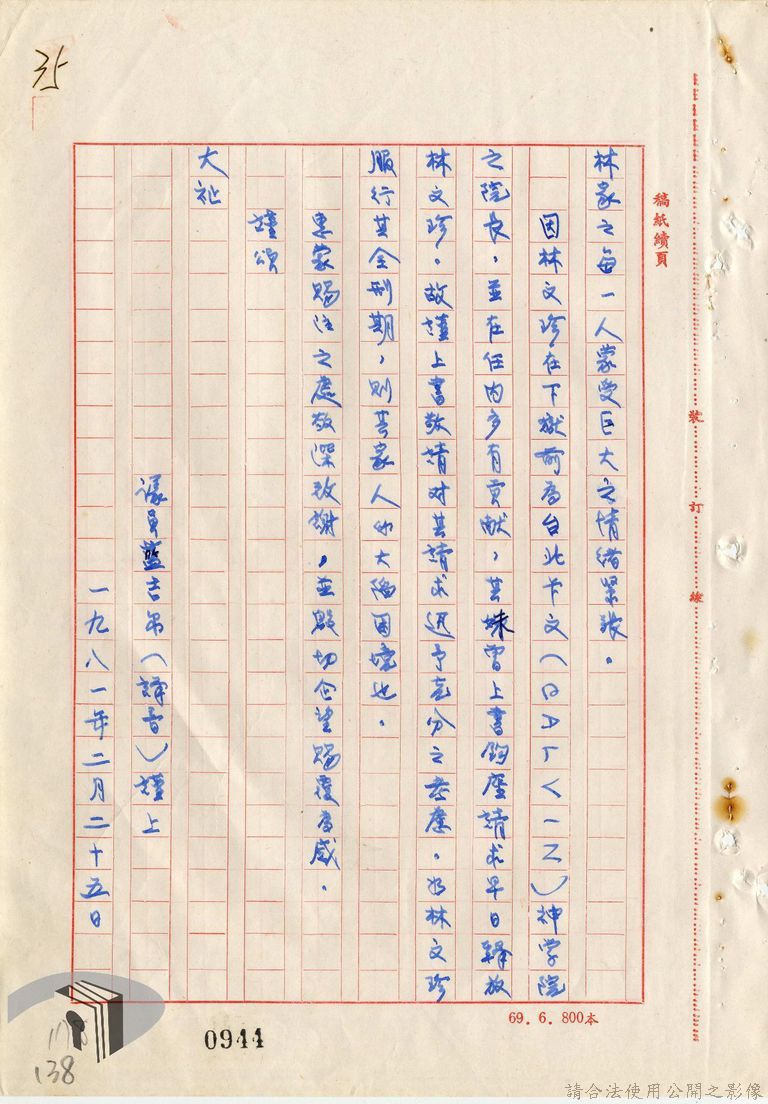 35
稿紙續頁
林家之每一人蒙受巨大之情緒緊張。
因林文珍在下獄前為台北卡文(CALVIN)神学院
之院長,並在任內多有貢献,其妹曾上書鈞座請求早日釋放
林文珍。故謹上書敬請對其請求迅予充分之考慮。如林文珍
服行其全刑期,則其家人必大陷困境也。
惠蒙賜注之處敬深致謝,並殷切企望賜覆為感。
謹頌
大祉
議員藍吉布(譯音)謹上
一九八一年二月二十五日
裝
訂
線
69. 6. 800本
0944
178
138
請合法使用公開之影像